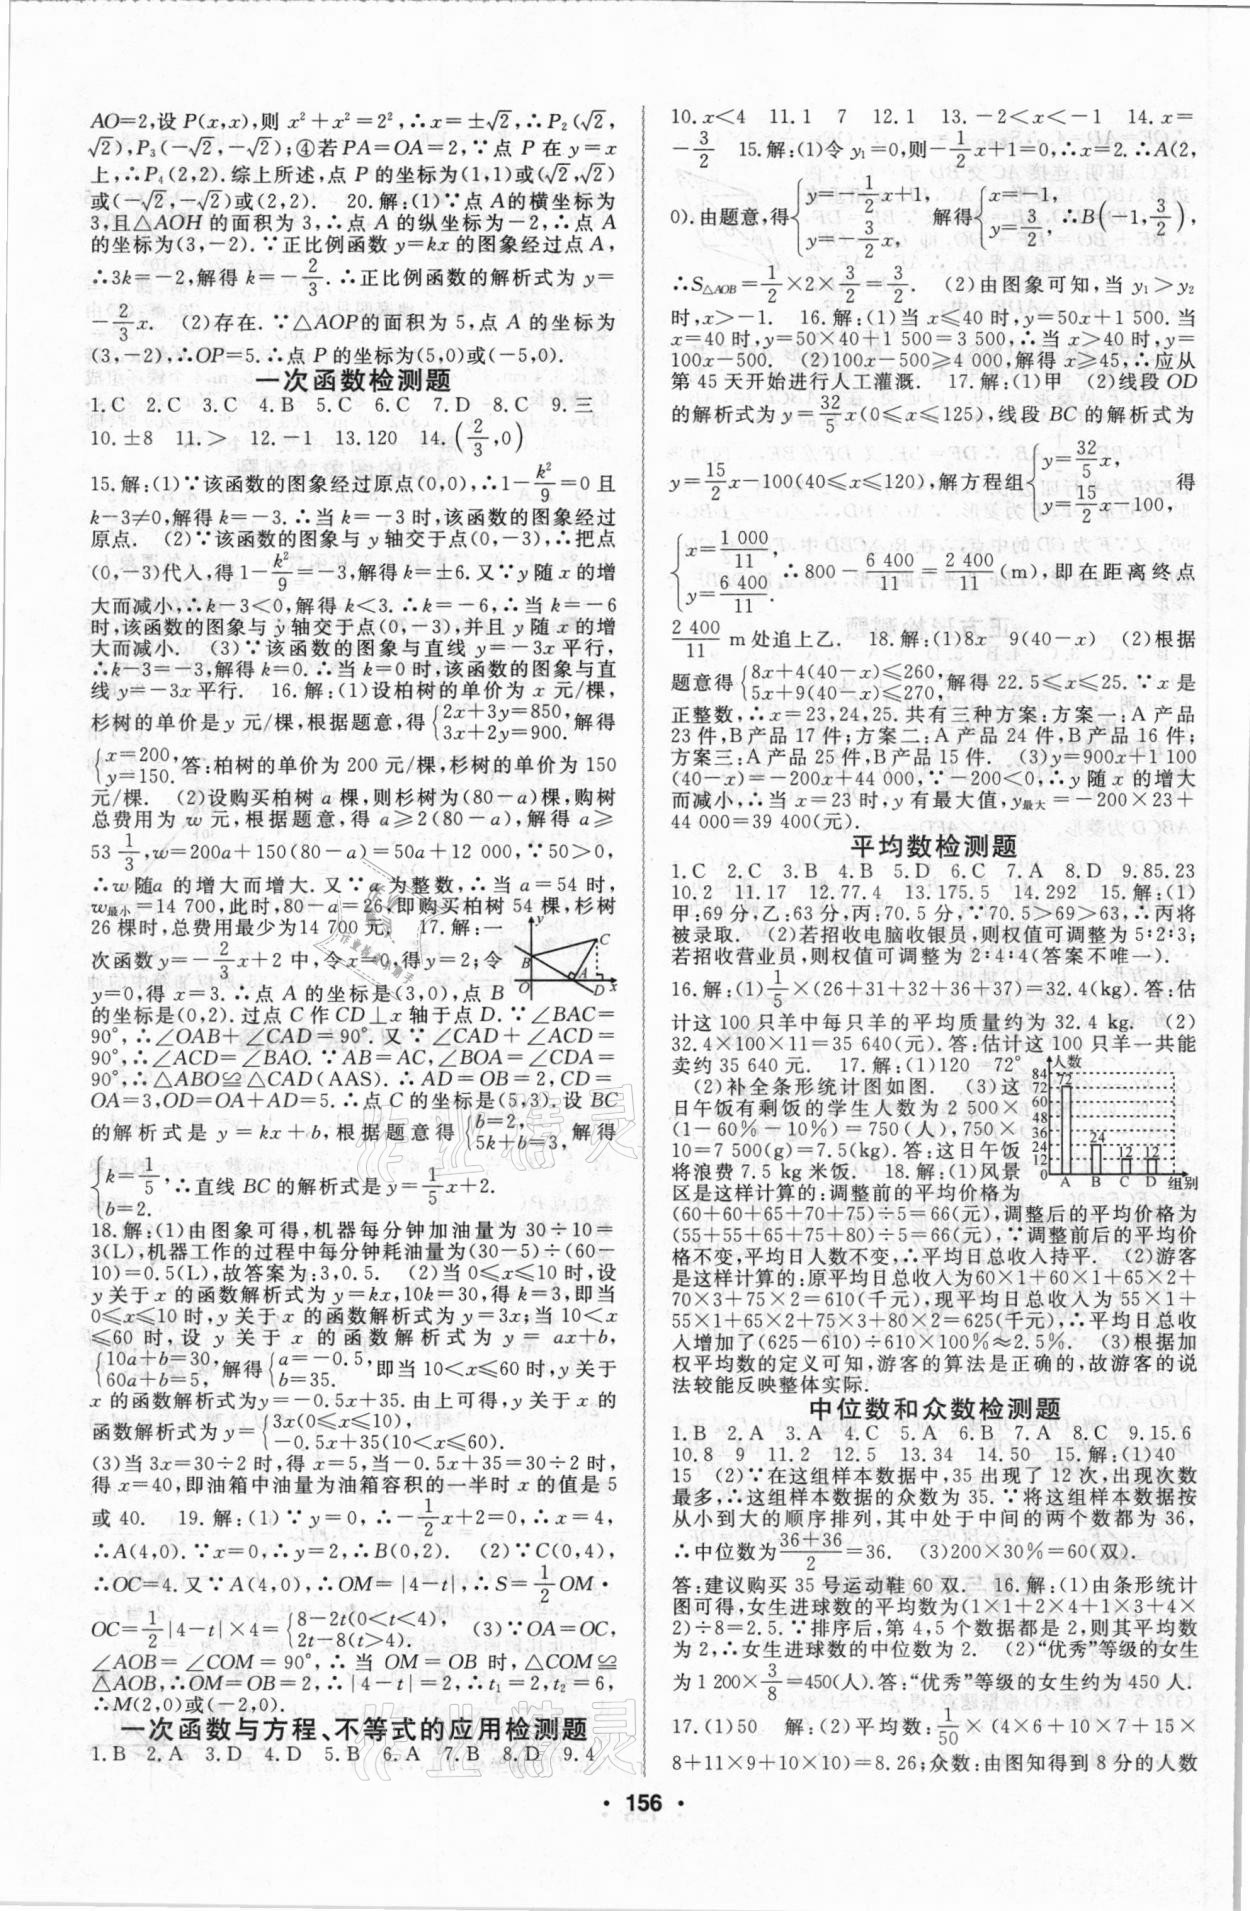 AO=2,设 P(x,x),则 x²+x²=2²,∴x=±√2,∴P₂(√2,
√2),P₃(-√2,-√2);④若PA=OA=2,∵点 P 在 y=x
上,∴P₄(2,2).综上所述,点 P 的坐标为(1,1)或(√2,√2)
或(-√2,-√2)或(2,2). 20.解:(1)∵点 A的横坐标为
3,且△AOH 的面积为 3,∴点 A 的纵坐标为-2,∴点 A
的坐标为(3,-2).∵正比例函数 y=kx 的图象经过点 A,
∴3k=-2,解得 k=-2/3.∴正比例函数的解析式为 y=
-2/3x. (2)存在.∵△AOP的面积为 5,点 A 的坐标为
(3,-2),∴OP=5.∴点 P 的坐标为(5,0)或(-5,0).
一次函数检测题
1.C 2.C 3.C 4.B 5.C 6.C 7.D 8.C 9.三
10.±8 11.> 12.-1 13.120 14.(2/3,0)
15.解:(1)∵该函数的图象经过原点(0,0),∴1-k²/9=0且
k-3≠0,解得 k=-3.∴当 k=-3 时,该函数的图象经过
原点. (2)∵该函数的图象与 y 轴交于点(0,-3),∴把点
(0,-3)代人,得 1-k²/9=-3,解得 k=±6.又∵y 随 x 的增
大而减小,∴k-3<0,解得 k<3.∴k=-6,∴当 k=-6
时,该函数的图象与 y轴交于点(0,-3),并且 y 随 x 的增
大而减小. (3)∵该函数的图象与直线 y=-3x 平行,
∴k-3=-3,解得 k=0.∴当 k=0 时,该函数的图象与直
线 y=-3x 平行. 16.解:(1)设柏树的单价为 x 元/棵,
杉树的单价是 y 元/棵,根据题意,得{2x+3y=850, 3x+2y=900.解得
{x=200, y=150.答:柏树的单价为 200 元/棵,杉树的单价为 150
元/棵. (2)设购买柏树 a 棵,则杉树为(80-a)棵,购树
总费用为 w 元,根据题意,得 a≥2(80-a),解得 a≥
53 1/3,w=200a+150(80-a)=50a+12 000,∵50>0,
∴w 随a 的增大而增大.又∵a 为整数,∴当 a=54 时,
w最小=14 700,此时,80-a=26,即购买柏树 54 棵,杉树
26 棵时,总费用最少为14 700 元. 17.解:一
次函数 y=-2/3x+2 中,令x=0,得y=2;令
y=0,得 x=3.∴点 A 的坐标是(3,0),点 B
的坐标是(0,2).过点 C 作 CD⊥x 轴于点 D.∵∠BAC=
90°,∴∠OAB+∠CAD=90°.又∵∠CAD+∠ACD=
90°,∴∠ACD=∠BAO.∵AB=AC,∠BOA=∠CDA=
90°,∴△ABO≌△CAD(AAS).∴AD=OB=2,CD=
OA=3,OD=OA+AD=5.∴点 C 的坐标是(5,3).设 BC
的解析式是 y=kx+b,根据题意得{b=2, 5k+b=3,解得
{k=1/5, b=2. ∴直线 BC 的解析式是 y=1/5x+2.
18.解:(1)由图象可得,机器每分钟加油量为 30÷10=
3(L),机器工作的过程中每分钟耗油量为(30-5)÷(60-
10)=0.5(L),故答案为:3,0.5. (2)当 0≤x≤10 时,设
y关于 x 的函数解析式为 y=kx,10k=30,得 k=3,即当
0≤x≤10 时,y 关于 x 的函数解析式为 y=3x;当 10<x
≤60 时,设 y 关于 x 的函数解析式为 y=ax+b,
{10a+b=30, 60a+b=5,解得{a=-0.5, b=35. 即当 10<x≤60 时,y 关于
x 的函数解析式为y=-0.5x+35.由上可得,y 关于 x 的
函数解析式为 y={3x(0≤x≤10), -0.5x+35(10<x≤60).
(3)当 3x=30÷2 时,得 x=5,当-0.5x+35=30÷2 时,
得 x=40,即油箱中油量为油箱容积的一半时 x 的值是 5
或 40. 19.解:(1)∵y=0,∴-1/2x+2=0,∴x=4,
∴A(4,0).∵x=0,∴y=2,∴B(0,2). (2)∵C(0,4),
∴OC=4.又∵A(4,0),∴OM=|4-t|,∴S=1/2OM·
OC=1/2|4-t|×4={8-2t(0<t<4), 2t-8(t>4). (3)∵OA=OC,
∠AOB=∠COM=90°,∴当 OM=OB 时,△COM≌
△AOB,∴OM=OB=2,∴|4-t|=2,∴t₁=2,t₂=6,
∴M(2,0)或(-2,0).
一次函数与方程、不等式的应用检测题
1.B 2.A 3.D 4.D 5.B 6.A 7.B 8.D 9.4
10.x<4 11.1 7 12.1 13.-2<x<-1 14.x=
-3/2 15.解:(1)令 y₁=0,则-1/2x+1=0,∴x=2.∴A(2,
0).由题意,得{y=-1/2x+1, y=-3/2x, 解得{x=-1, y=3/2, ∴B(-1,3/2),
∴S△AOB=1/2×2×3/2=3/2. (2)由图象可知,当 y₁>y₂
时,x>-1. 16.解:(1)当 x≤40 时,y=50x+1 500.当
x=40 时,y=50×40+1 500=3 500,∴当 x>40 时,y=
100x-500. (2)100x-500≥4 000,解得 x≥45,∴应从
第 45 天开始进行人工灌溉. 17.解:(1)甲 (2)线段 OD
的解析式为 y=32/5x(0≤x≤125),线段 BC 的解析式为
y=15/2x-100(40≤x≤120),解方程组{y=32/5x, y=15/2x-100, 得
{x=1 000/11, y=6 400/11. ∴800-6 400/11=2 400/11(m),即在距离终点
2 400/11 m 处追上乙. 18.解:(1)8x 9(40-x) (2)根据
题意得{8x+4(40-x)≤260, 5x+9(40-x)≤270,解得 22.5≤x≤25.∵x 是
正整数,∴x=23,24,25.共有三种方案:方案一:A 产品
23 件,B产品 17 件;方案二:A 产品 24 件,B产品 16 件;
方案三:A 产品 25 件,B 产品 15 件. (3)y=900x+1 100
(40-x)=-200x+44 000,∵-200<0,∴y 随 x 的增大
而减小,∴当 x=23 时,y 有最大值,y最大=-200×23+
44 000=39 400(元).
平均数检测题
1.C 2.C 3.B 4.B 5.D 6.C 7.A 8.D 9.85.23
10.2 11.17 12.77.4 13.175.5 14.292 15.解:(1)
甲:69 分,乙:63 分,丙:70.5 分,∵70.5>69>63,∴丙将
被录取. (2)若招收电脑收银员,则权值可调整为5∶2∶3;
若招收营业员,则权值可调整为 2∶4∶4(答案不唯一).
16.解:(1)1/5×(26+31+32+36+37)=32.4(kg).答:估
计这 100 只羊中每只羊的平均质量约为 32.4 kg. (2)
32.4×100×11=35 640(元).答:估计这 100 只羊一共能
卖约 35 640 元. 17.解:(1)120 72°
(2)补全条形统计图如图. (3)这
日午饭有剩饭的学生人数为 2 500×
(1-60%-10%)=750(人),750×
10=7 500(g)=7.5(kg).答:这日午饭
将浪费 7.5 kg 米饭. 18.解:(1)风景
区是这样计算的:调整前的平均价格为
(60+60+65+70+75)÷5=66(元),调整后的平均价格为
(55+55+65+75+80)÷5=66(元),∵调整前后的平均价
格不变,平均日人数不变,∴平均日总收入持平. (2)游客
是这样计算的:原平均日总收入为60×1+60×1+65×2+
70×3+75×2=610(千元),现平均日总收入为 55×1+
55×1+65×2+75×3+80×2=625(千元),∴平均日总收
入增加了(625-610)÷610×100%≈2.5%. (3)根据加
权平均数的定义可知,游客的算法是正确的,故游客的说
法较能反映整体实际.
人数
84
72
60
48
36
24
12
72
24
12
12
A B C D 组别
y
B
C
O
A
D
x
中位数和众数检测题
1.B 2.A 3.A 4.C 5.A 6.B 7.A 8.C 9.15.6
10.8 9 11.2 12.5 13.34 14.50 15.解:(1)40
15 (2)∵在这组样本数据中,35 出现了 12 次,出现次数
最多,∴这组样本数据的众数为 35.∵将这组样本数据按
从小到大的顺序排列,其中处于中间的两个数都为 36,
∴中位数为36+36/2=36. (3)200×30%=60(双).
答:建议购买 35 号运动鞋 60 双. 16.解:(1)由条形统计
图可得,女生进球数的平均数为(1×1+2×4+1×3+4×
2)÷8=2.5.∵排序后,第 4,5 个数据都是 2,则其平均数
为 2,∴女生进球数的中位数为 2. (2)“优秀”等级的女生
为 1 200×3/8=450(人).答:“优秀”等级的女生约为 450 人.
17.(1)50 解:(2)平均数:1/50×(4×6+10×7+15×
8+11×9+10×10)=8.26;众数:由图知得到 8 分的人数
· 156 ·
作业精灵
作业精灵